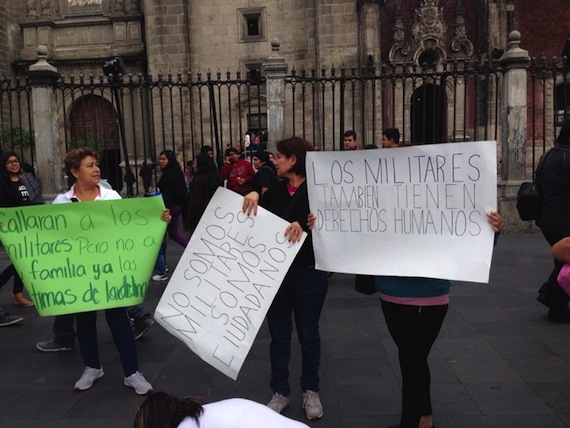 Callaran a los
militares Pero no a
familia ya las
timas de la
NO SOMOS
MILITARES
SOMOS
CIUDADANOS
LOS MILITARES
TAMBIEN TIENEN
DERECHOS HUMANOS